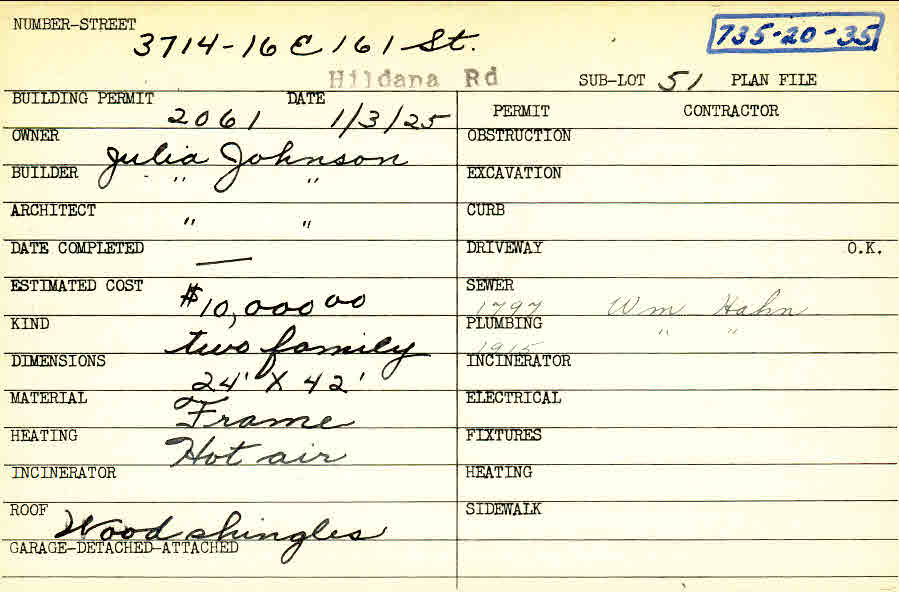 NUMBER-STREET 3714-16 E 161 St. 735-20-35
Hildana Rd SUB-LOT 51 PLAN FILE
BUILDING PERMIT 2061 DATE 1/3/25
OWNER Julia Johnson
BUILDER " "
ARCHITECT " "
DATE COMPLETED —
ESTIMATED COST $10,000 00
KIND two family
DIMENSIONS 24' X 42'
MATERIAL Frame
HEATING Hot air
INCINERATOR
ROOF Wood shingles
GARAGE-DETACHED-ATTACHED
PERMIT CONTRACTOR
OBSTRUCTION
EXCAVATION
CURB
DRIVEWAY O.K.
SEWER 1797 Wm Hahn
PLUMBING 1915 " "
INCINERATOR
ELECTRICAL
FIXTURES
HEATING
SIDEWALK